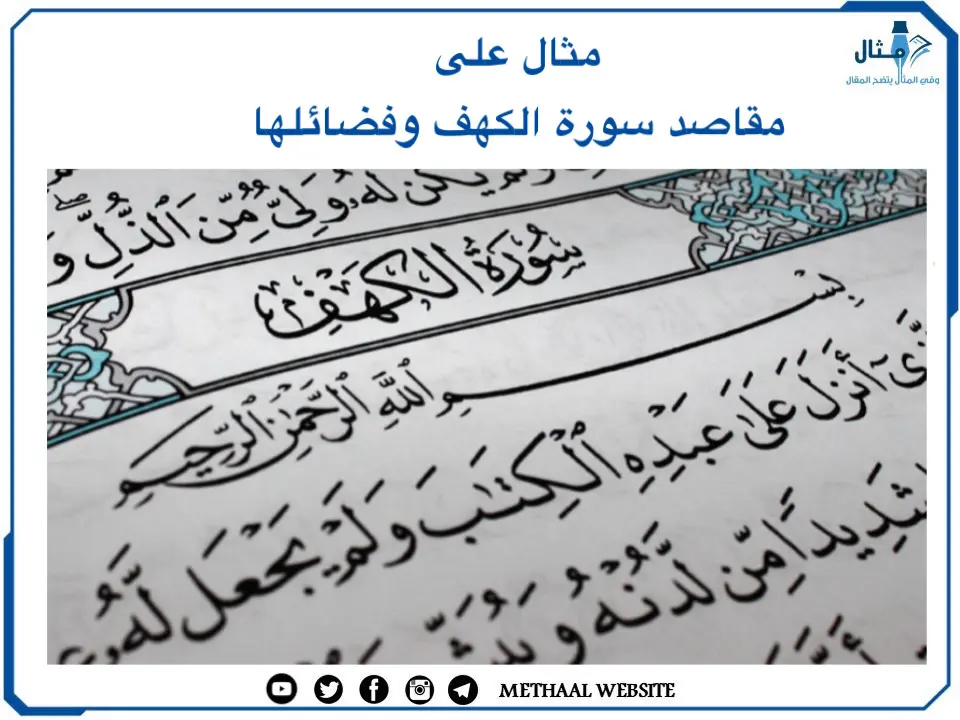 مثال
وفي المثال يتضح المقال
مثال على
مقاصد سورة الكهف وفضائلها
يكن لَّهُۥ وَلِىٌّ مِّنَ ٱلذُّلِّ وَ
سُورَةُ الكَهْفِ
بِسْمِ ٱللَّهِ ٱلرَّحْمَٰنِ ٱلرَّحِيمِ
أَنزَلَ عَلَىٰ عَبْدِهِ ٱلْكِتَٰبَ وَلَمْ يَجْعَل لَّهُۥ
شَدِيدًا مِّن لَّدُنْهُ
METHAAL WEBSITE